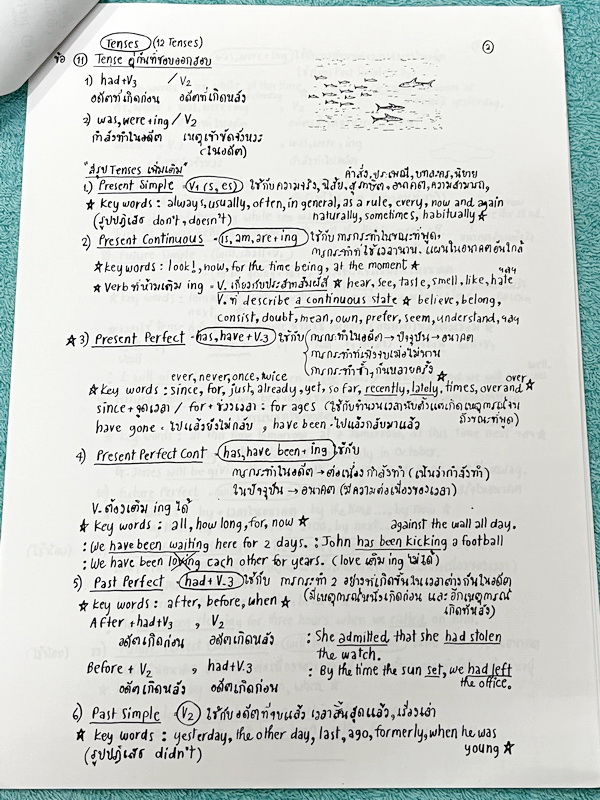 Tenses (12 Tenses)
2
ข้อ 11 Tense คู่กันที่ชอบออกสอบ
1) had+V3 / V2
อดีตที่เกิดก่อน อดีตที่เกิดหลัง
2) was, were + ing / V2
กำลังทำในอดีต เหตุเข้าขัดจังหวะ
(ในอดีต)
"สรุป Tenses เพิ่มเติม"
คำสั่ง, ประเพณี, บทละคร, นิยาย
1.) Present Simple V1 (s, es) ใช้กับความจริง, นิสัย, สุภาษิต, อนาคต, ความสามารถ,
★ Key words : always, usually, often, in general, as a rule, every, now and again
(รูปปฏิเสธ don't, doesn't) naturally, sometimes, habitually ★
2) Present Continuous - is, am, are + ing ใช้กับ การกระทำในขณะที่พูด,
การกระทำที่ใช้เวลานาน, แผนในอนาคตอันใกล้
★ Key words : look!, now, for the time being, at the moment ★
★ Verb ที่ห้ามเติม ing - V. เกี่ยวกับประสาทสัมผัส ★ hear, see, taste, smell, like, hate ฯลฯ
V. ที่ describe a continuous state ★ believe, belong,
consist, doubt, mean, own, prefer, seem, understand, ฯลฯ
★ 3) Present Perfect - has, have + V.3 ใช้กับ การกระทำในอดีต → ปัจจุบัน → อนาคต
การกระทำที่เพิ่งจบเมื่อไม่นาน
การกระทำซ้ำๆกันหลายครั้ง
ever, never, once, twice
★ Key words : since, for, just, already, yet, so far, recently, lately, times, over and over ★
since + จุดเวลา / for + ช่วงเวลา : for ages (ใช้กับจำนวนเวลานับตั้งแต่เกิดเหตุการณ์จน
have gone - ไปแล้วยังไม่กลับ , have been - ไปแล้วกลับมาแล้ว ถึงขณะที่พูด)
4) Present Perfect Cont - has, have been + ing ใช้กับ
การกระทำในอดีต → ต่อเนื่อง กำลังทำ (เน้นว่ากำลังทำ)
ในปัจจุบัน → อนาคต (มีความต่อเนื่องของเวลา)
V. ต้องเติม ing ได้
★ Key words : all, how long, for, now ★ against the wall all day.
: We have been waiting here for 2 days. : John has been kicking a football
: We have been loving each other for years. (love เติม ing ไม่ได้)
5) Past Perfect - had + V.3 ใช้กับ การกระทำ 2 อย่างที่เกิดขึ้นในเวลาต่างกันในอดีต
★ Key words : after, before, when ★ (มีเหตุการณ์หนึ่งเกิดก่อน และอีกเหตุการณ์
เกิดทีหลัง)
After + had + V3 , V2
อดีตเกิดก่อน อดีตเกิดหลัง : She admitted that she had stolen
the watch.
Before + V2 , had + V.3 : By the time the sun set, we had left
อดีตเกิดหลัง อดีตเกิดก่อน the office.
6) Past Simple - V2 ใช้กับอดีตที่จบแล้ว เวลาสิ้นสุดแล้ว, เรื่องเล่า
★ Key words : yesterday, the other day, last, ago, formerly, when he was
(รูปปฏิเสธ didn't) young ★